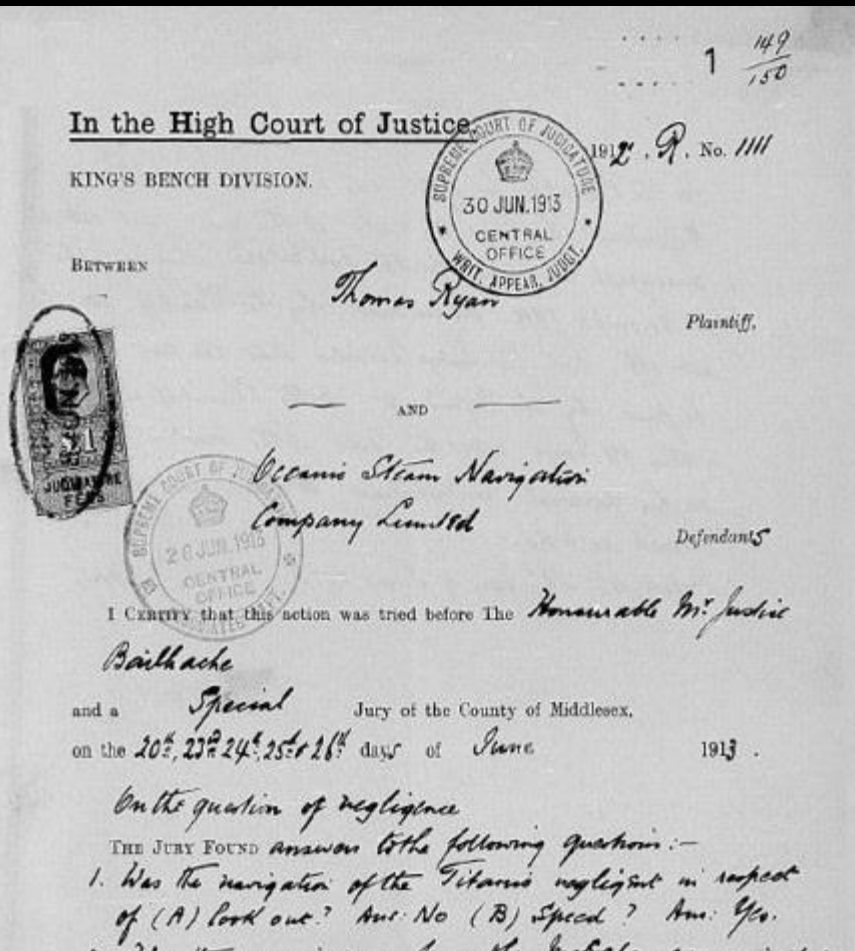 1 149/150
In the High Court of Justice.
1912. R. No. 1111
KING'S BENCH DIVISION.
SUPREME COURT OF JUDICATURE
30 JUN.1913
CENTRAL
OFFICE
WRIT, APPEAR, JUDGT.
BETWEEN
Thomas Ryan
Plaintiff,
AND
£1
JUDICATURE
FEES
Oceanic Steam Navigation
Company Limited
Defendants
SUPREME COURT OF JUDICATURE
JUN.1913
CENTRAL
OFFICE
I CERTIFY that this action was tried before The Honourable Mr. Justice
Bailhache
and a Special Jury of the County of Middlesex,
on the 20th, 23rd 24th, 25th & 26th days of June 1913.
On the question of negligence
THE JURY FOUND answers to the following questions:-
1. Was the navigation of the Titanic negligent in respect
of (A) look out? Ans: No (B) Speed? Ans: Yes.